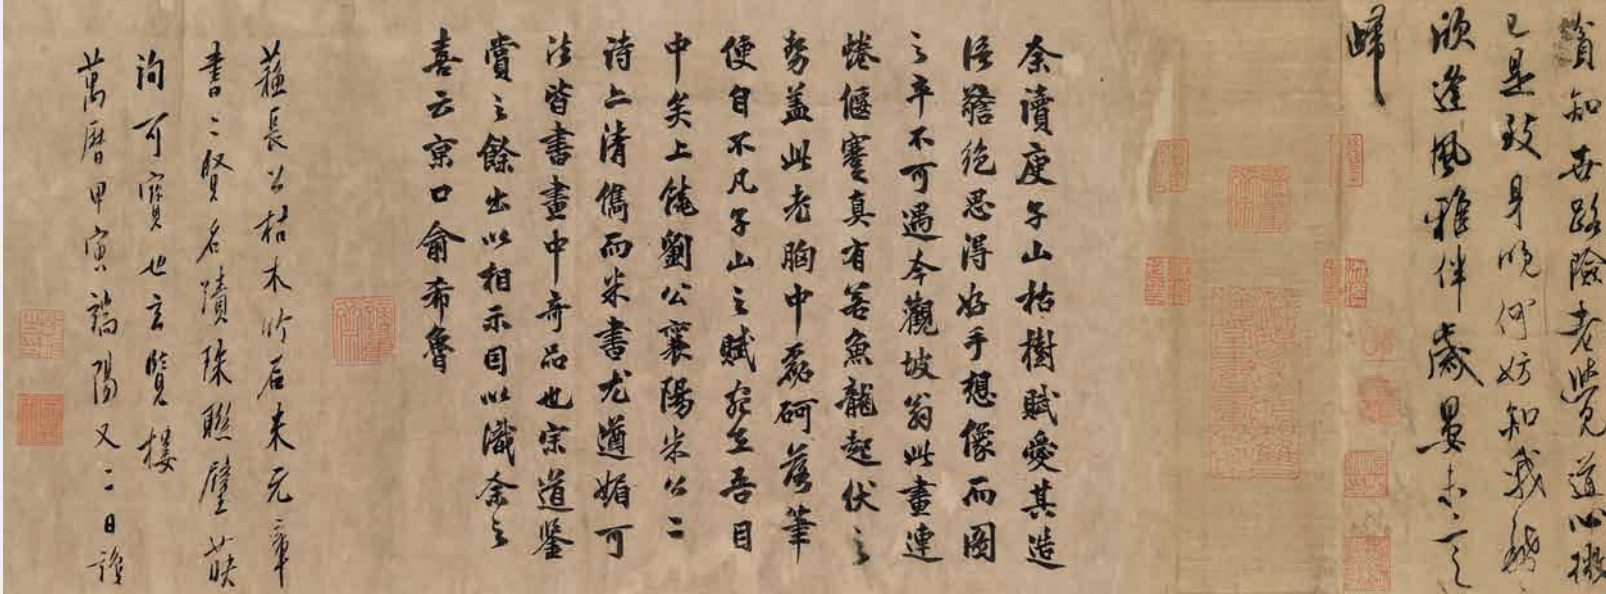 貧知世路險老覺道心微
已是致身晚何妨知我稀
欣逢風雅伴歲晏未言
歸
余讀庾子山枯樹賦愛其造
語警絶思得好手想像而圖
之卒不可遇今觀坡翁此畫連
蜷偃蹇真有若魚龍起伏之
勢盖此老胸中磊砢落筆
便自不凡子山之賦宛在吾目
中矣上饒劉公襄陽米公二
詩上清儁而米書尤遒媚可
法皆書畫中奇品也宗道鑒
賞之餘出以相示因以識余之
喜云京口俞希魯
蘇長公枯木竹石米元章
書二賢名蹟珠聯璧
洵可寶也玄覽樓
萬曆甲寅端陽又二日識